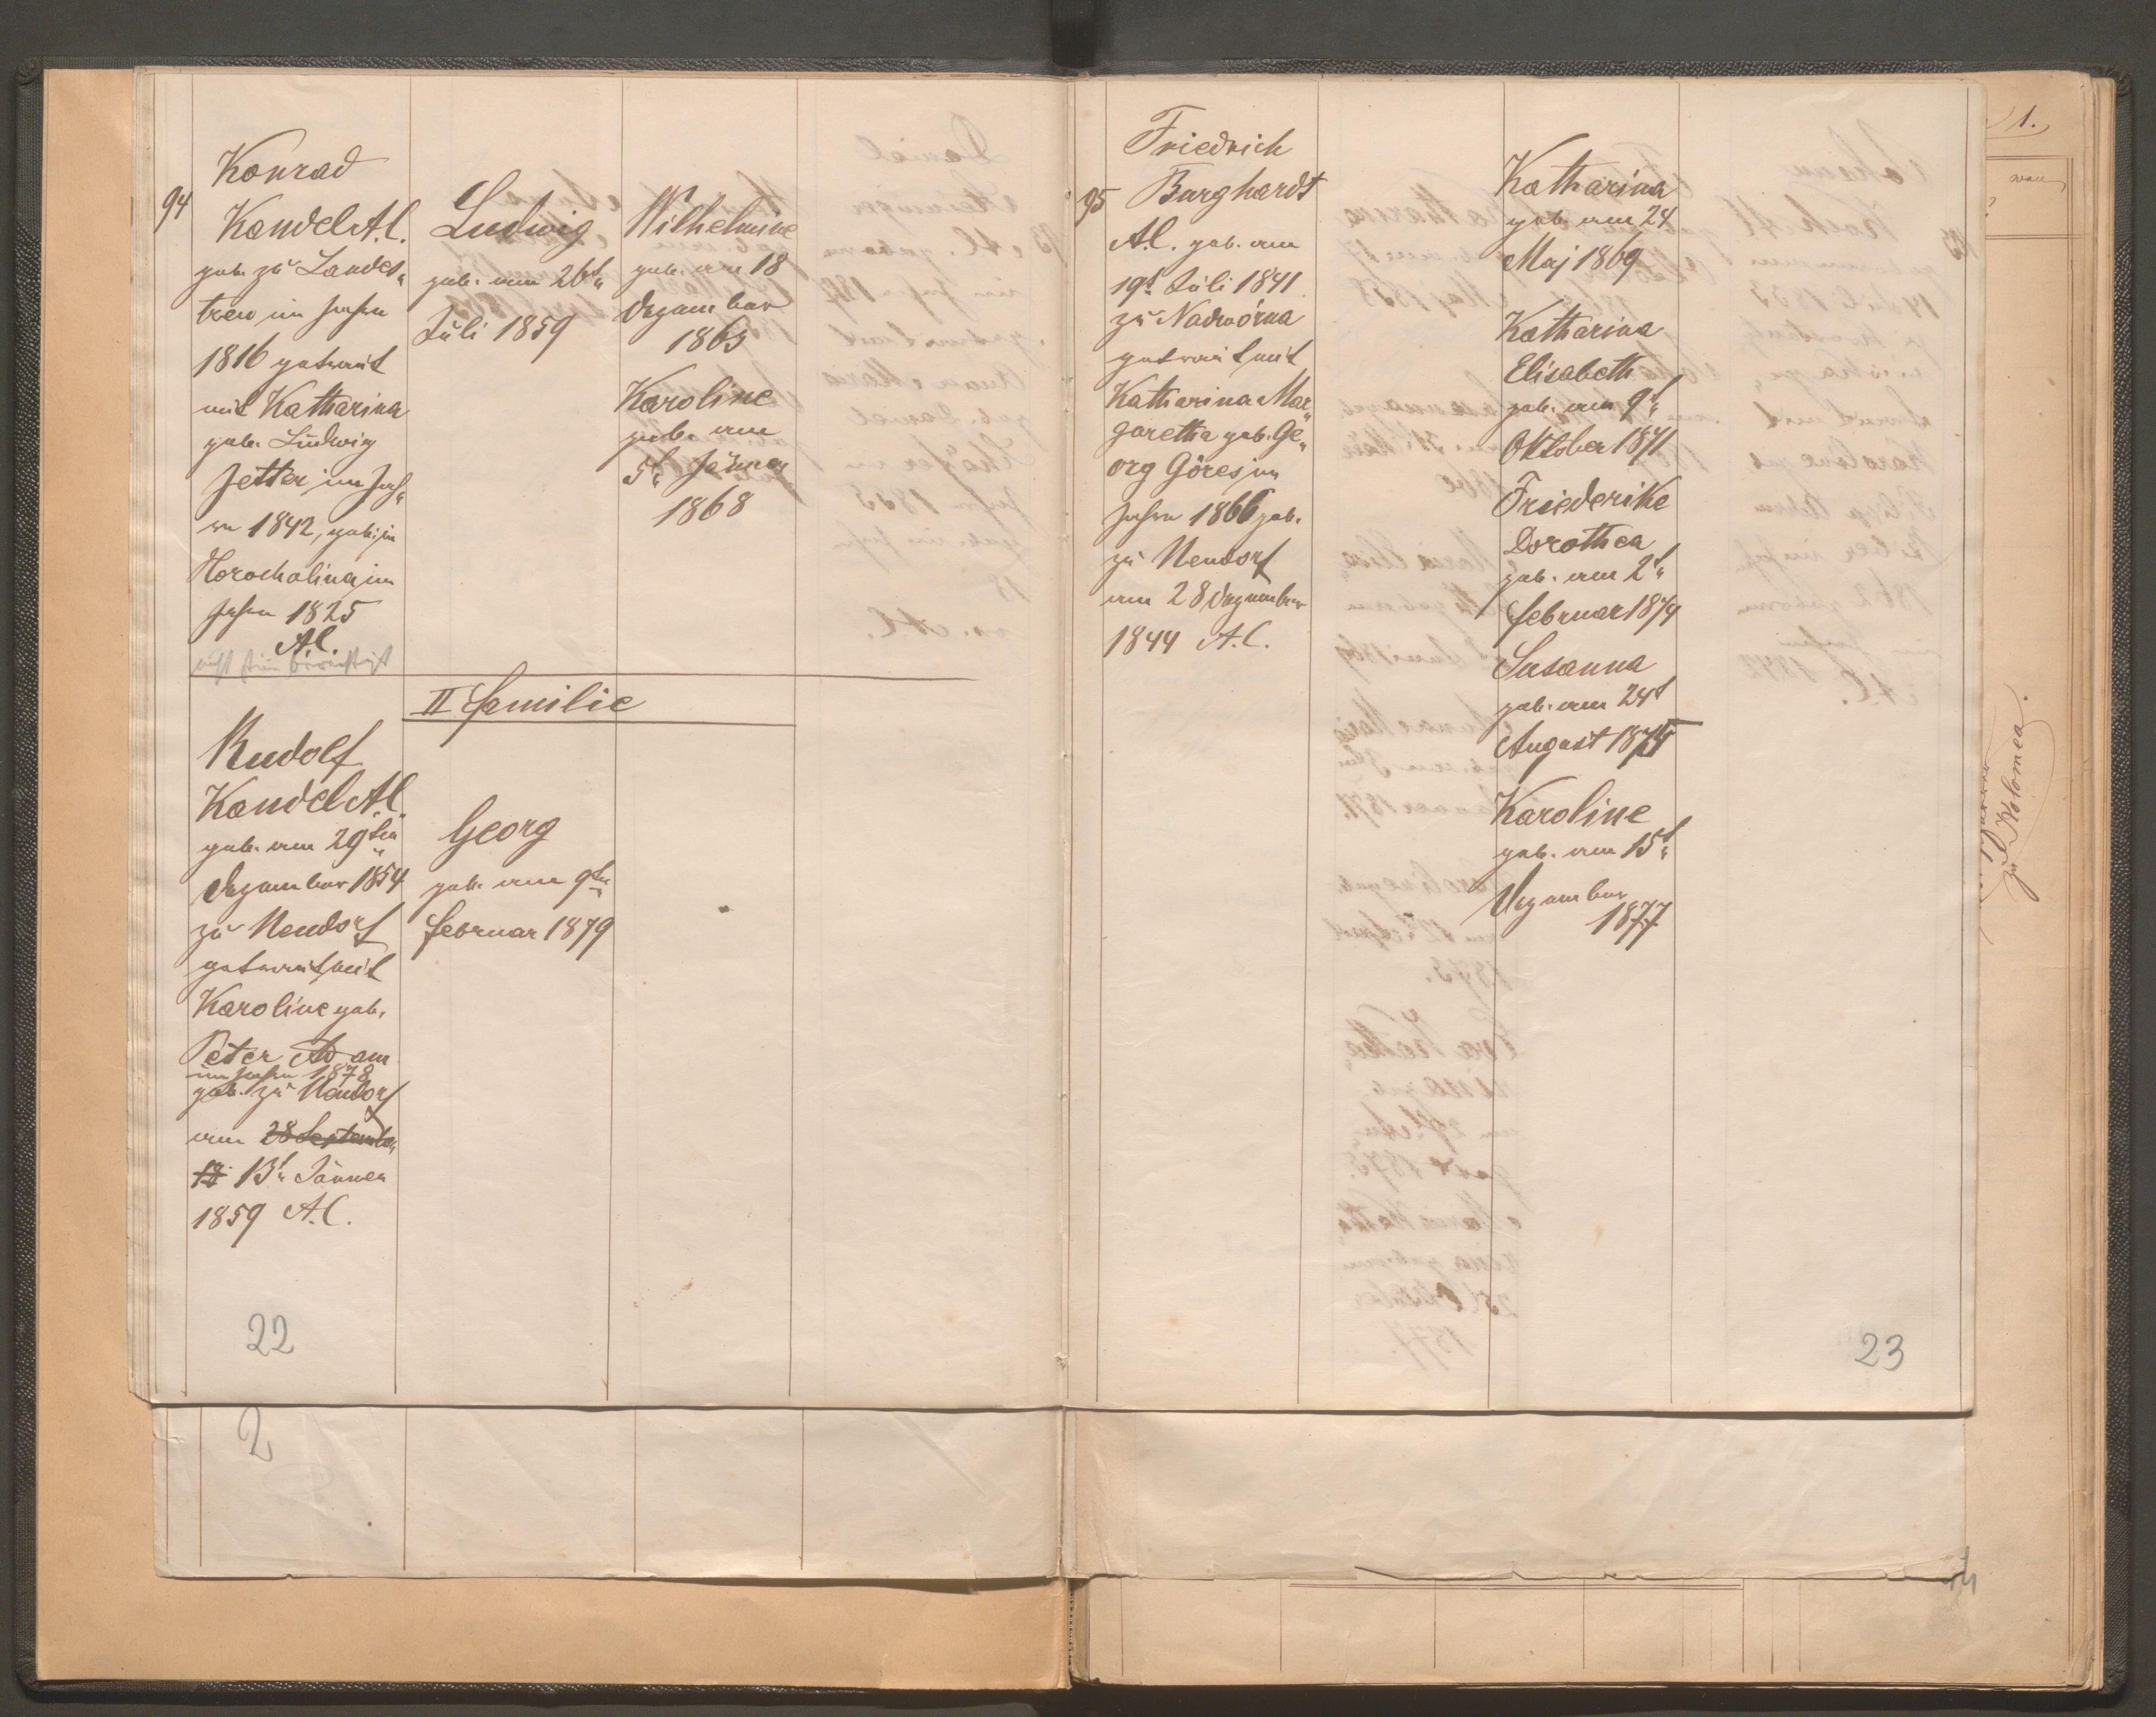 94
Konrad
Kandel A.C.
geb. zu Landes„
treu im Jahre
1816 getraut
mit Katharina
geb. Ludwig
Jetter im Jah„
re 1842, geb. zu
Horocholina im
Jahre 1825
A.C.
nicht stim̄berechtigt
Ludwig
geb. am 26t„
Juli 1859
Wilhelmine
geb. am 18
Dezember
1865
Karoline
geb. am
5t„ Jänner
1868
II Familie
Rudolf
Kandel A.C.
geb. am 29ten
Dezember 1854
zu Neudorf
getraut mit
Karoline geb.
Peter Adam
im Jahre 1878
geb. zu Neudorf
am 28 September„
18 13t„ Jänner
1859 A.C.
Georg
geb. am 9ten
Februar 1879
22
2
95
Friedrich
Burghardt
A.C. geb. am
19t Juli 1841
zu Nadwórna
getraut mit
Katharina Mar„
garetha geb. Ge„
org Göres im
Jahre 1866 geb.
zu Neudorf
am 28 Dezember
1844 A.C.
Katharina
geb. am 24
Maj 1869
Katharina
Elisabeth
geb. am 9t„
Oktober 1871
Friederike
Dorothea
geb. am 2t„
Februar 1874
Susanna
geb. am 24t
August 1875
Karoline
geb. am 15t„
Dezember
1877
23
1.
zu Kolomea.